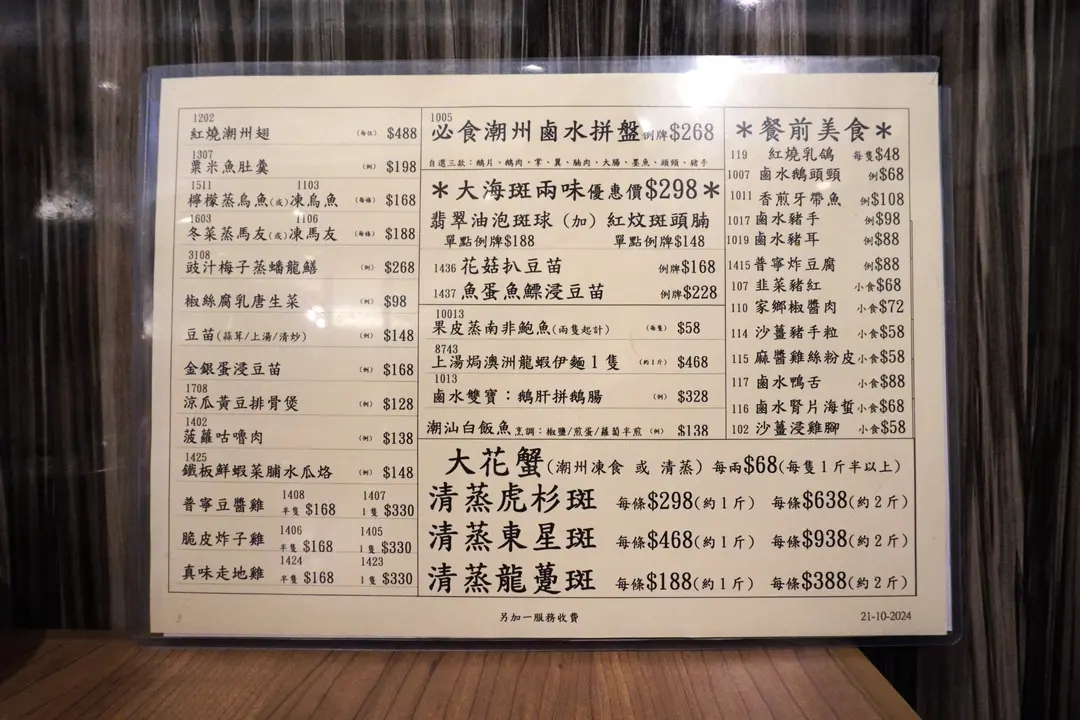 1202
紅燒潮州翅 (每位) $488
1307
粟米魚肚羹 (例) $198
1511 1103
檸檬蒸烏魚(或)凍烏魚 (每條) $168
1603 1106
冬菜蒸馬友(或)凍馬友 (每條) $188
3108
豉汁梅子蒸蟠龍鱔 (例) $268
椒絲腐乳唐生菜 (例) $98
豆苗(蒜茸/上湯/清炒) (例) $148
金銀蛋浸豆苗 (例) $168
1708
涼瓜黃豆排骨煲 (例) $128
1402
菠蘿咕嚕肉 (例) $138
1425
鐵板鮮蝦菜脯水瓜烙 (例) $148
1408 1407
普寧豆醬雞 半隻 $168 1隻 $330
1406 1405
脆皮炸子雞 半隻 $168 1隻 $330
1424 1423
真味走地雞 半隻 $168 1隻 $330
1005
必食潮州鹵水拼盤 例牌$268
自選三款:鵝片、鵝肉、掌、翼、腩肉、大腸、墨魚、頭頸、豬手
*大海斑兩味優惠價$298*
翡翠油泡斑球 (加) 紅炆斑頭腩
單點例牌$188 單點例牌$148
1436 花菇扒豆苗 例牌$168
1437 魚蛋魚鰾浸豆苗 例牌$228
10013
果皮蒸南非鮑魚(兩隻起計) (每隻) $58
8743
上湯焗澳洲龍蝦伊麵1隻 (約1斤) $468
1013
鹵水雙寶:鵝肝拼鵝腸 (例) $328
潮汕白飯魚 烹調:椒鹽/煎蛋/蘿蔔半煎 (例) $138
*餐前美食*
119 紅燒乳鴿 每隻$48
1007 鹵水鵝頭頸 例$68
1011 香煎牙帶魚 例$108
1017 鹵水豬手 例$98
1019 鹵水豬耳 例$88
1415 普寧炸豆腐 例$88
107 韭菜豬紅 小食$68
110 家鄉椒醬肉 小食$72
114 沙薑豬手粒 小食$58
115 麻醬雞絲粉皮 小食$58
117 鹵水鴨舌 小食$88
116 鹵水腎片海蜇 小食$68
102 沙薑浸雞腳 小食$58
大花蟹(潮州凍食 或 清蒸) 每兩$68(每隻1斤半以上)
清蒸虎杉斑 每條$298(約1斤) 每條$638(約2斤)
清蒸東星斑 每條$468(約1斤) 每條$938(約2斤)
清蒸龍躉斑 每條$188(約1斤) 每條$388(約2斤)
另加一服務收費
21-10-2024